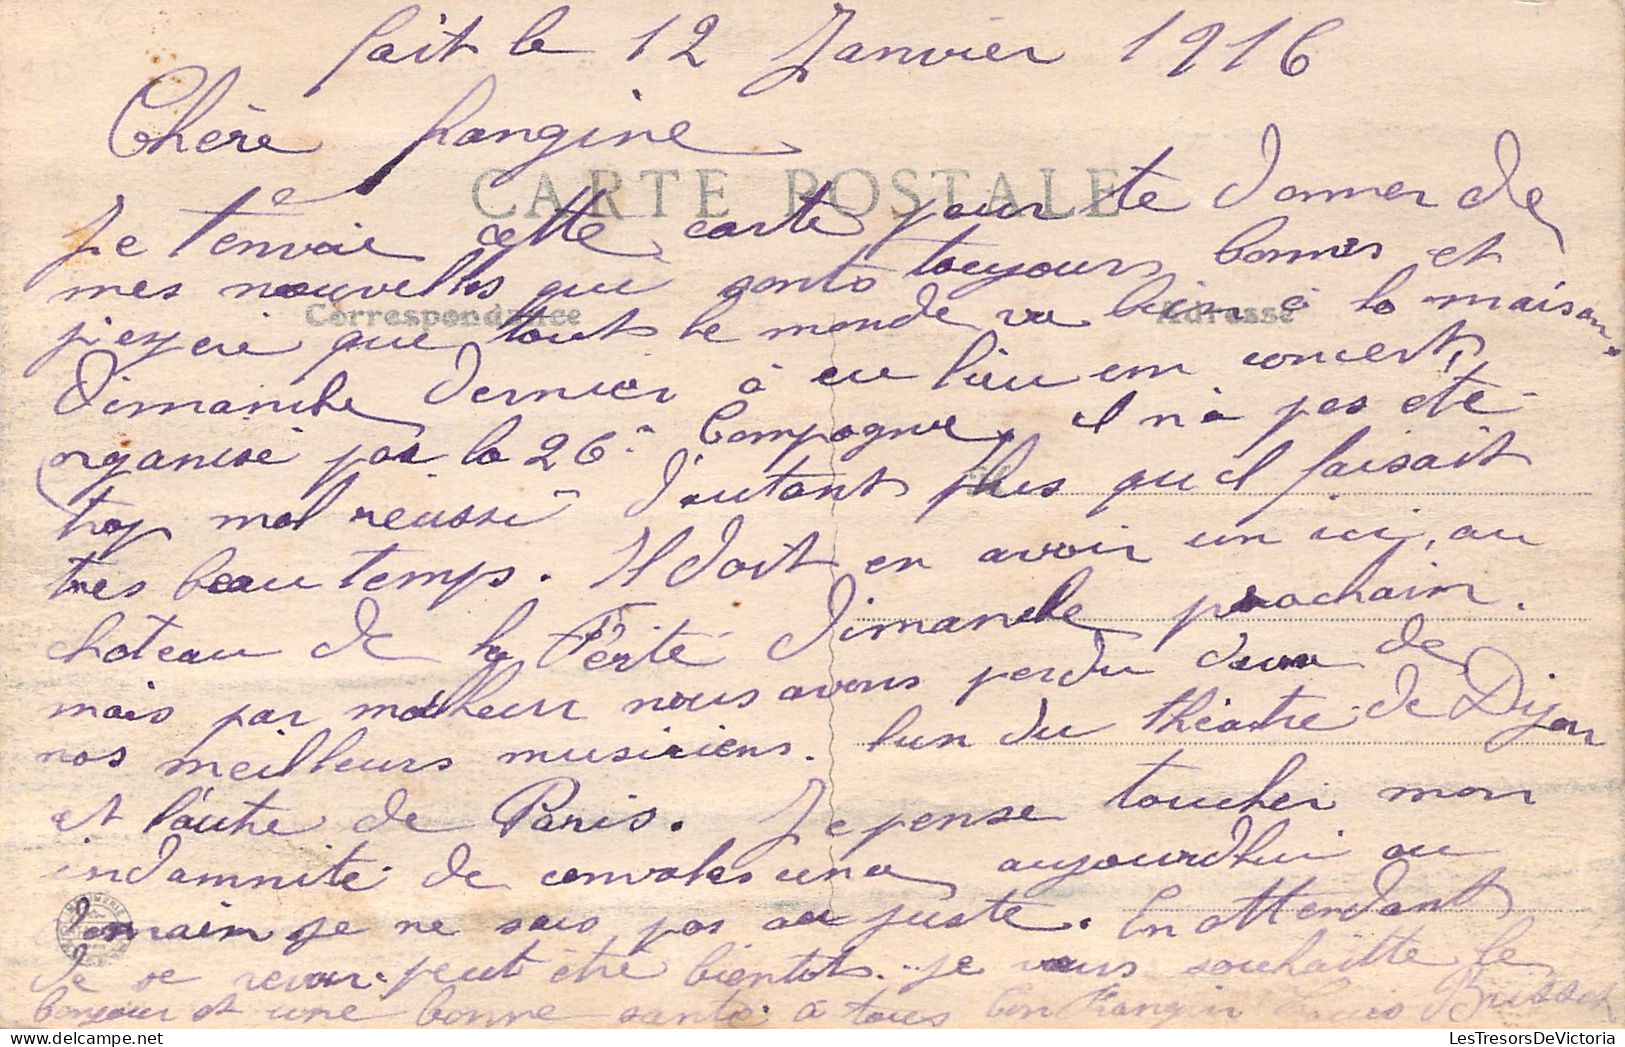 fait le 12 Janvier 1916
Chère frangine
CARTE POSTALE
Je t'envoie cette carte pour te donner de
mes nouvelles qui sont toujours bonnes et
Correspondance
Adresse
j'espere que tout le monde va bien à la maison.
Dimanche dernier à eu lieu un concert,
organisé par la 26e Compagnie, il n'a pas été
trop mal reussi d'autant plus qu'il faisait
tres beau temps. Il doit en avoir un ici, au
château de la Ferté Dimanche prochain.
mais par malheur nous avons perdu deux de
nos meilleurs musiciens. l'un du théâtre de Dijon
et l'autre de Paris. Je pense toucher mon
indamnité de convalescence aujourd'hui ou
demain je ne sais pas au juste. En attendant
de se revoir peut être bientot. je vous souhaitte le
bonjour et une bonne santé à tous ton frangin Brisset
LesTresorsDeVictoria